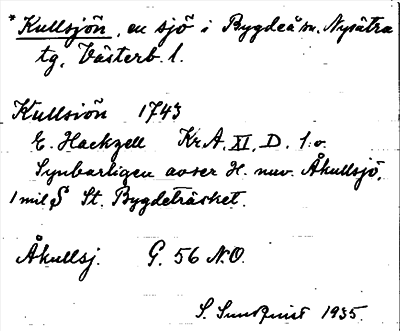 *Kullsjön, en sjö i Bygdeå sn. Nysätra
tg, Västerb. l.
Kullsiön 1743
E. Hackzell Kr.A. XI, D. 1.o.
Synbarligen avser H. nuv. Åkullsjö,
1 mil S St. Bygdeträsket.
Åkullsj. G. 56 N.O.
S. Sundquist 1935.